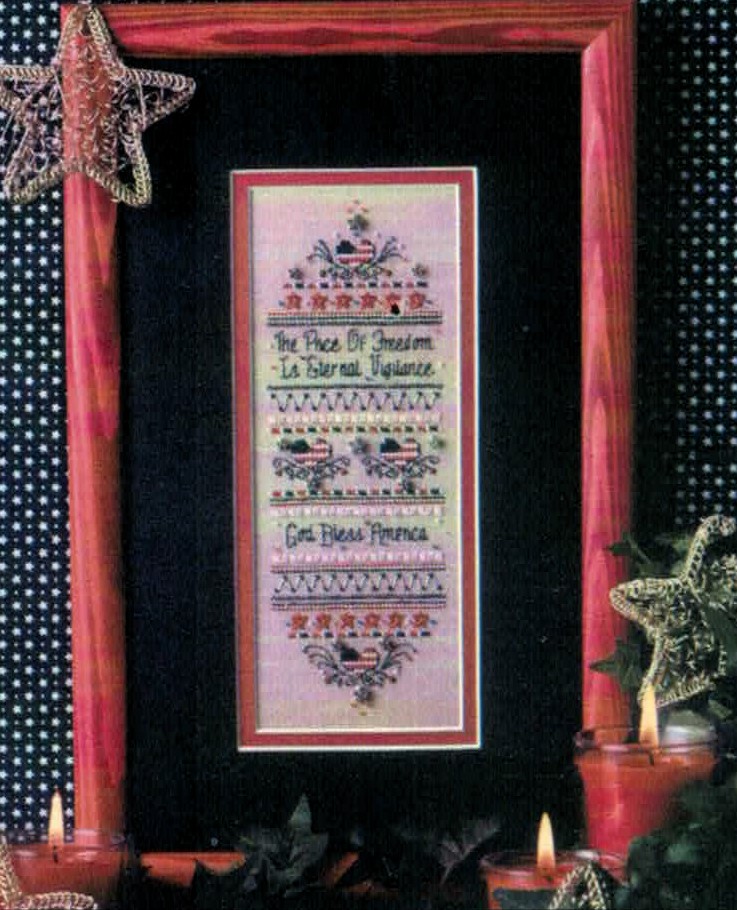 The Price Of Freedom
Is Eternal Vigilance
God Bless America